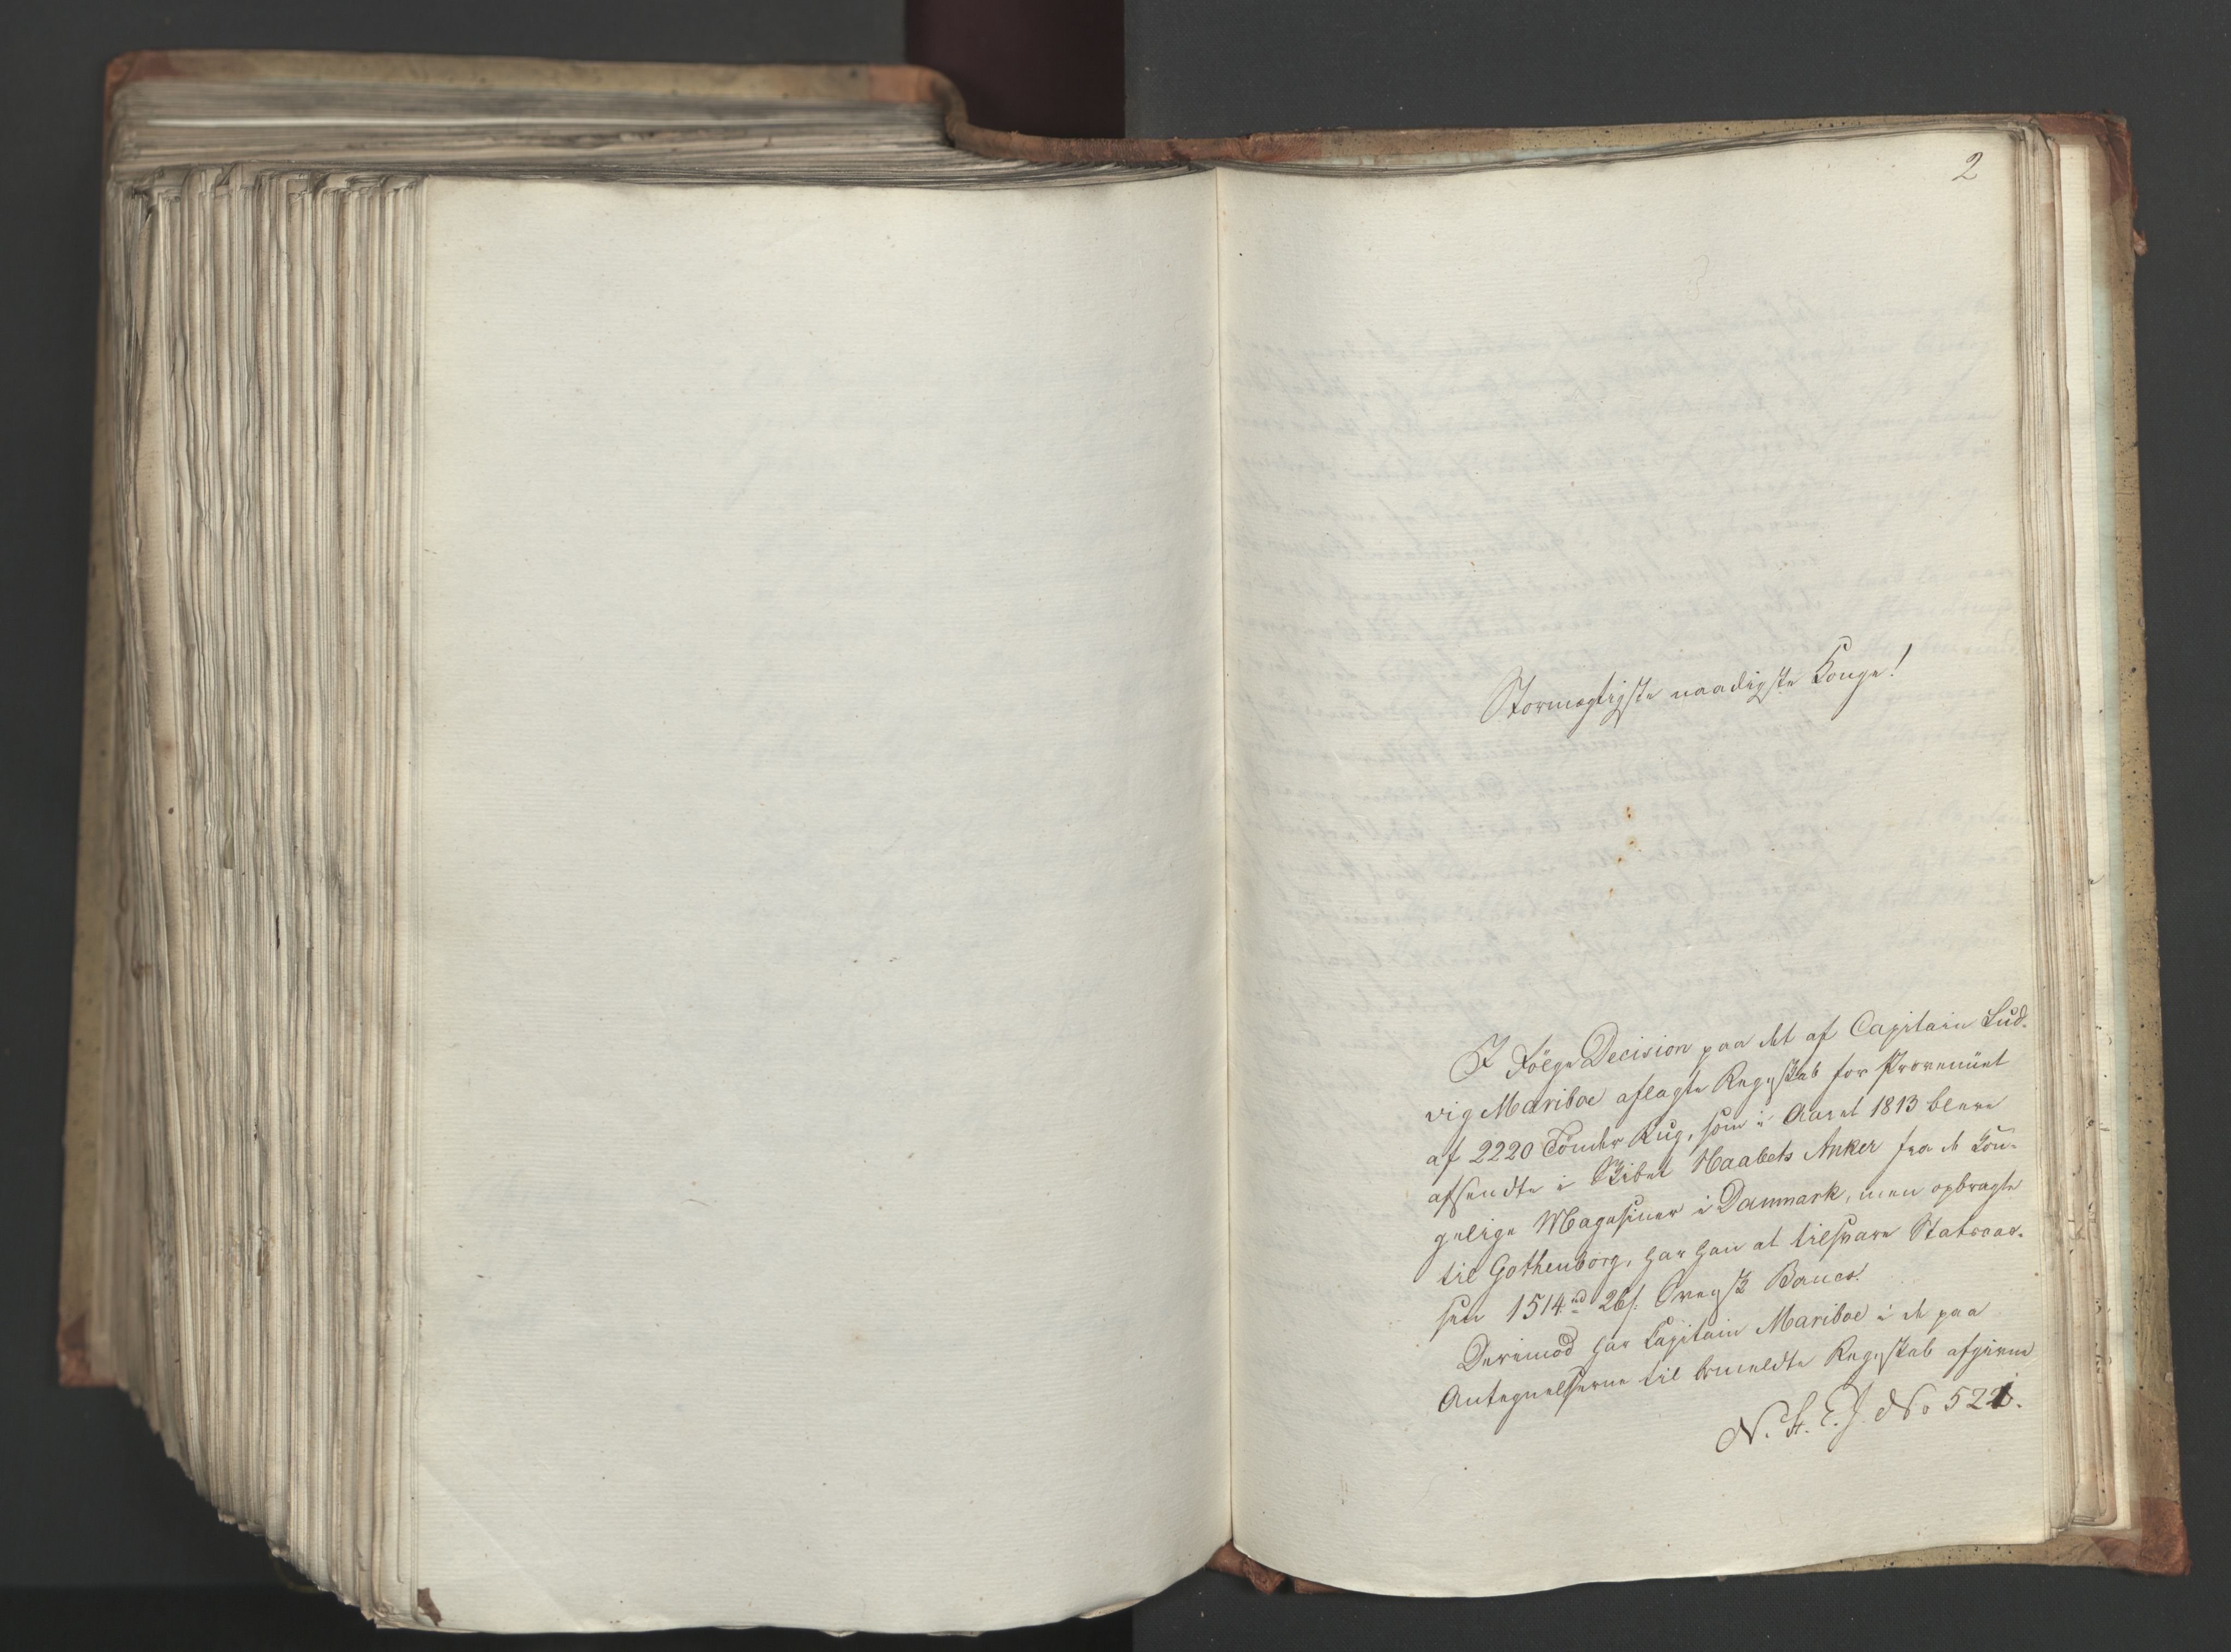 2
Stormægtigste naadigste Konge!
I Fölge Decision paa det af Capitain Lud-
vig Mariboe aflagte Regnskab for Provenüet
af 2220 Tönder Rug, som i Aaret 1813 bleve
afsendte i Skibet Haabets Anker fra de Kon-
gelige Magasiner i Danmark, men opbragte
til Gothenborg, har han at tilsvare Statscas-
sen 1514 rd 26 s. Svensk Banco.
Derimod har Capitain Mariboe i de paa
Antegnelserne til bemeldte Regnskab afgivne
N. St. E. J. No 521.